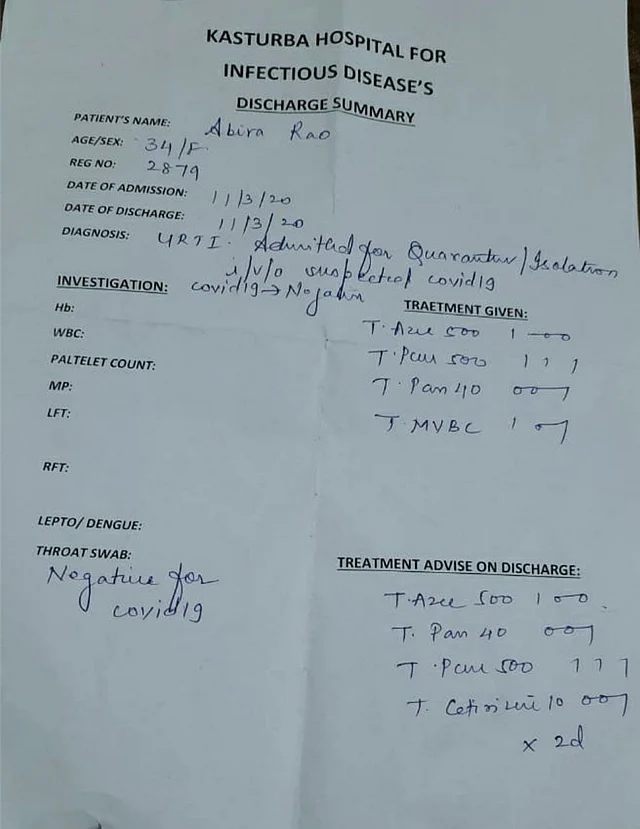 KASTURBA HOSPITAL FOR
INFECTIOUS DISEASE'S
DISCHARGE SUMMARY
PATIENT'S NAME: Abira Rao
AGE/SEX: 34/F
REG NO: 2879
DATE OF ADMISSION: 11/3/20
DATE OF DISCHARGE: 11/3/20
DIAGNOSIS: URTI. Admitted for Quarantine/Isolation
i/v/o suspected covid19
INVESTIGATION: covid19 → Negative
TRAETMENT GIVEN:
Hb:
T. Azee 500 1-00
WBC:
T. Pcm 500 1 1 1
PALTELET COUNT:
T. Pan 40 001
MP:
T. MVBC 1 01
LFT:
RFT:
LEPTO/ DENGUE:
THROAT SWAB:
Negative for
covid19
TREATMENT ADVISE ON DISCHARGE:
T. Azee 500 1 00
T. Pan 40 001
T. Pcm 500 1 1 1
T. Cetirizine 10 001
x 2d